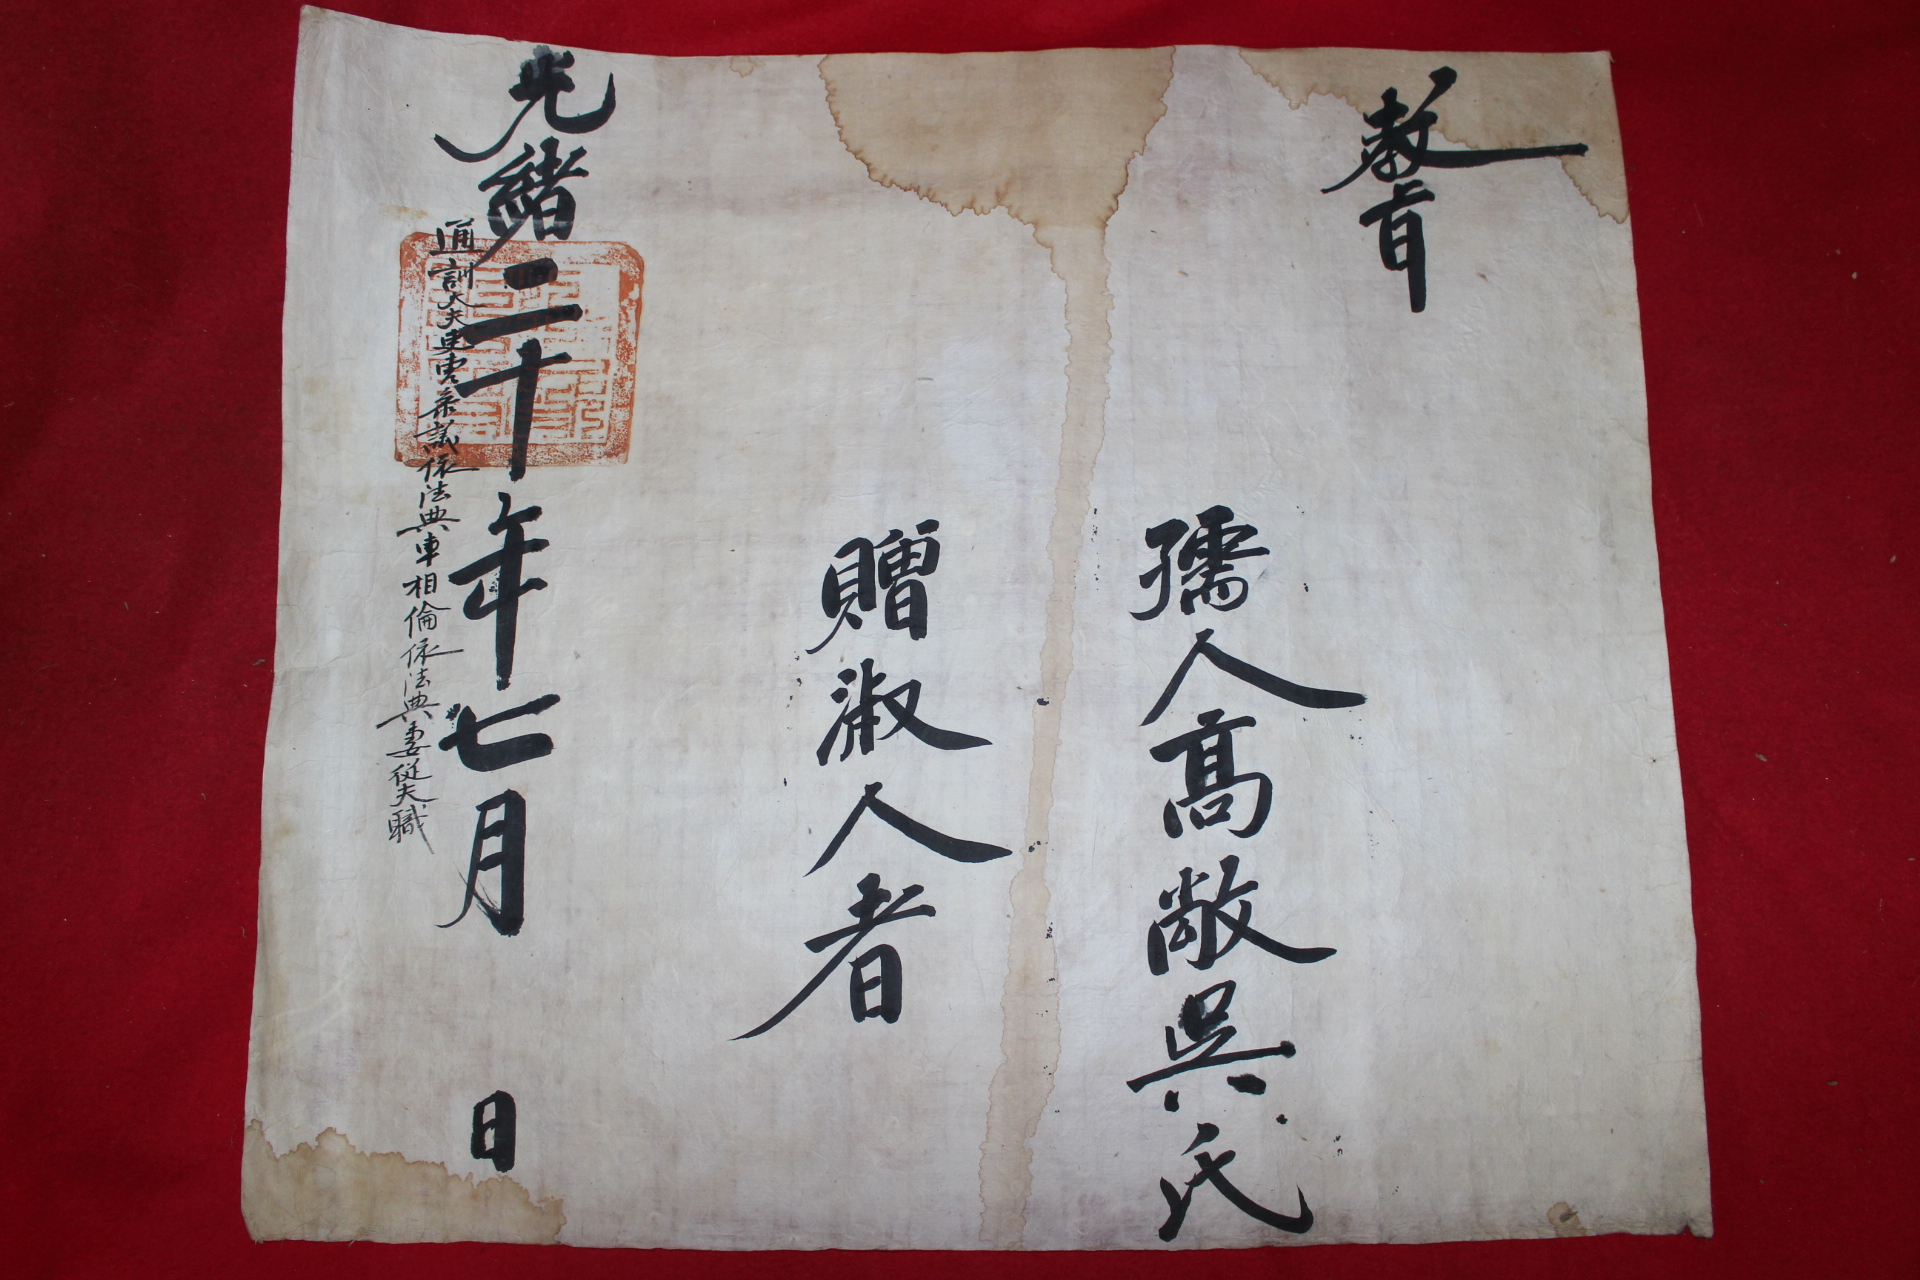 敎旨
孺人髙敞吳氏
贈淑人者
光緖二十年七月 日
通訓大夫吏曺叅議依法典車相倫依法典妻從夫職